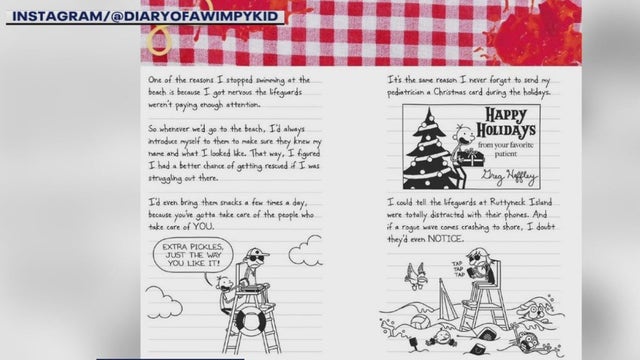 INSTAGRAM/@DIARYOFAWIMPYKID
One of the reasons I stopped swimming at the
beach is because I got nervous the lifeguards
weren't paying enough attention.
So whenever we'd go to the beach, I'd always
introduce myself to them to make sure they knew my
name and what I looked like. That way, I figured
I had a better chance of getting rescued if I was
struggling out there.
I'd even bring them snacks a few times a day,
because you've gotta take care of the people who
take care of YOU.
EXTRA PICKLES,
JUST THE WAY
YOU LIKE IT!
It's the same reason I never forget to send my
pediatrician a Christmas card during the holidays.
HAPPY
HOLIDAYS
from your favorite
patient
Greg Heffley
I could tell the lifeguards at Ruttyneck Island
were totally distracted with their phones. And
if a rogue wave comes crashing to shore, I doubt
they'd even NOTICE.
TAP
TAP
TAP